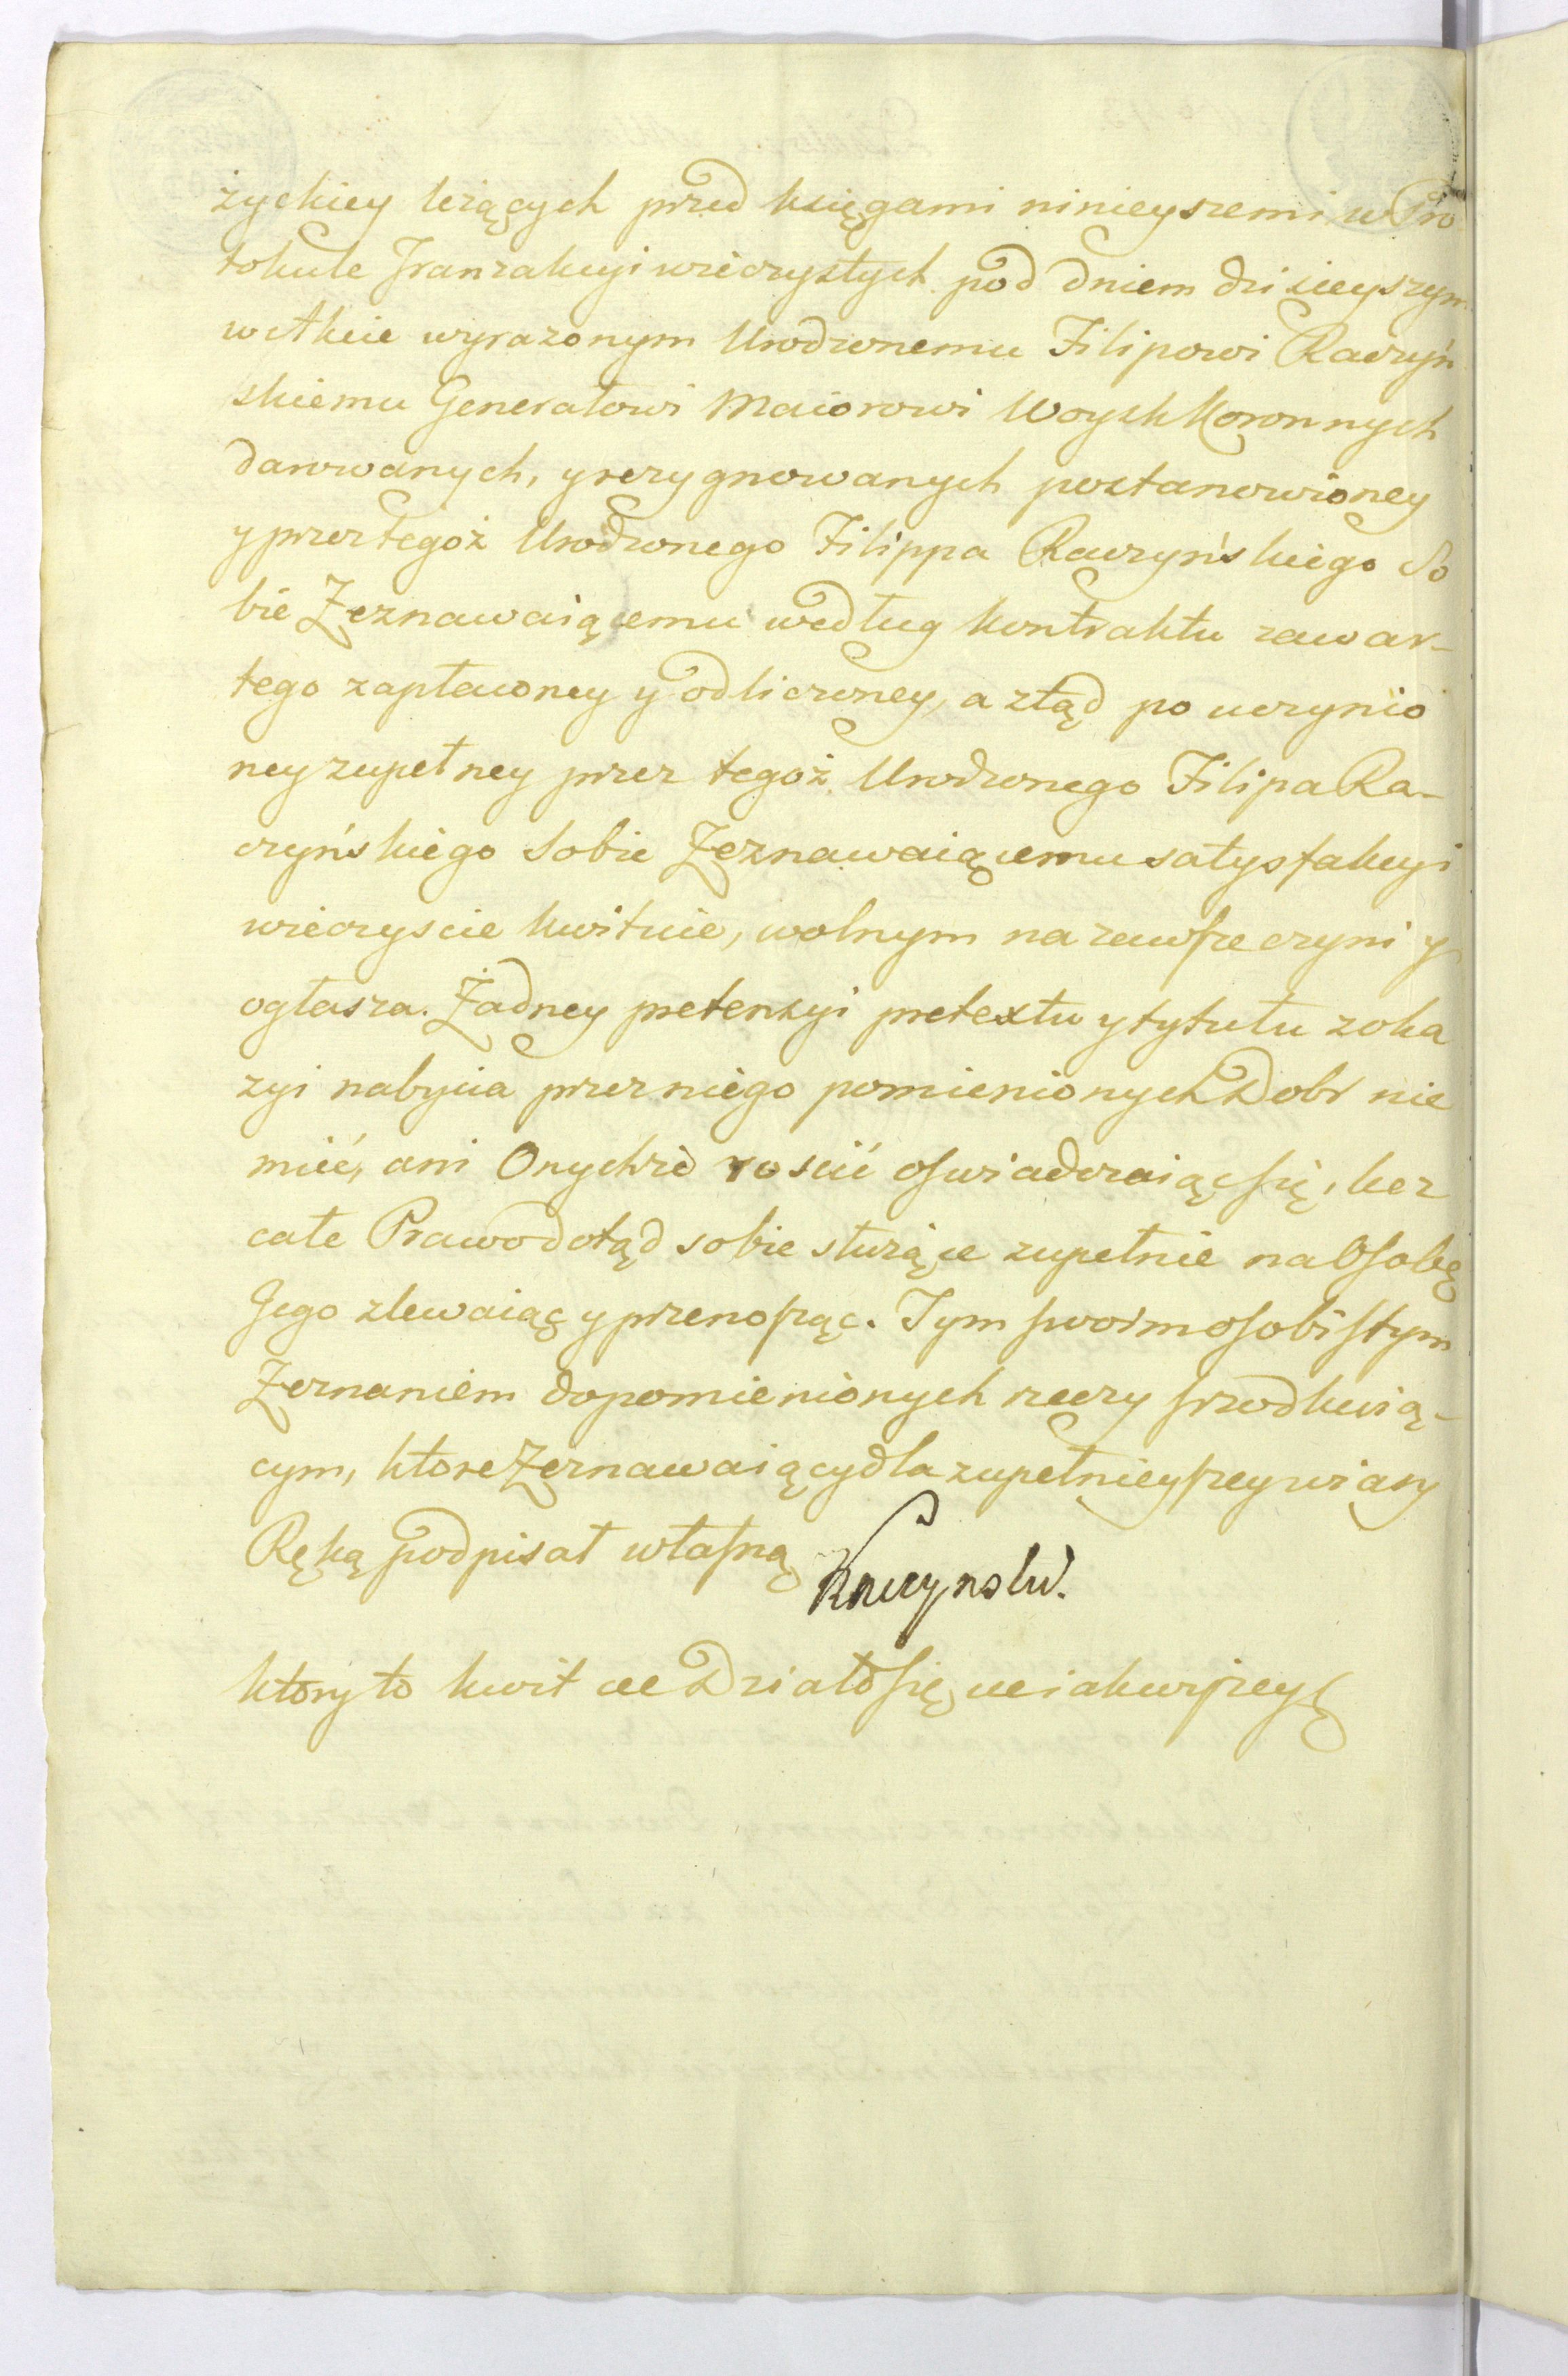 życkiey leżących przed księgami ninieyszemi w Pro
tokule Tranzakcyi wieczystych pod dniem dzisieyszym
w Akcie wyrazonym Urodzonemu Filipowi Raczyń
skiemu Generałowi Maiorowi Woysk Koronnych
darowanych, y rezygnowanych postanowioney
y przez tegoż Urodzonego Filippa Raczyńskiego So
bie Zeznawaiącemu według kontraktu zawar-
tego zapłaconey y odliczoney, a ztąd po uczynio
ney zupełney przez tegoż Urodzonego Filipa Ra-
czyńskiego Sobie Zeznawaiącemu satysfakcyi
wieczyscie kwituie, wolnym na zawsze czyni y
ogłasza. Żadney pretensyi pretextu y tytułu z oka
zyi nabycia przez niego pomienionych Dobr nie
mieć, ani Onychże roscić oswiadczaiąc się, lecz
całe Prawo dotąd sobie słuzące zupełnie na Osobę
Jego zlewaiąc y przenosząc. Tym swoim osobistym
Zeznaniem do pomienionych rzeczy srzodkuią-
cym, ktore Zeznawaiący dla zupełnieyszey wiary
Ręką podpisał własną
Raczynski.
ktory to kwit ee Działo się, ee iak wyżey